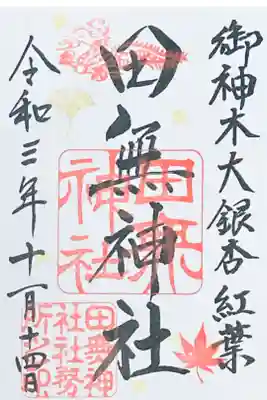 御神木大銀杏 紅葉
田無神社
令和三年十一月十四日
田無
神社
田無神
社社務